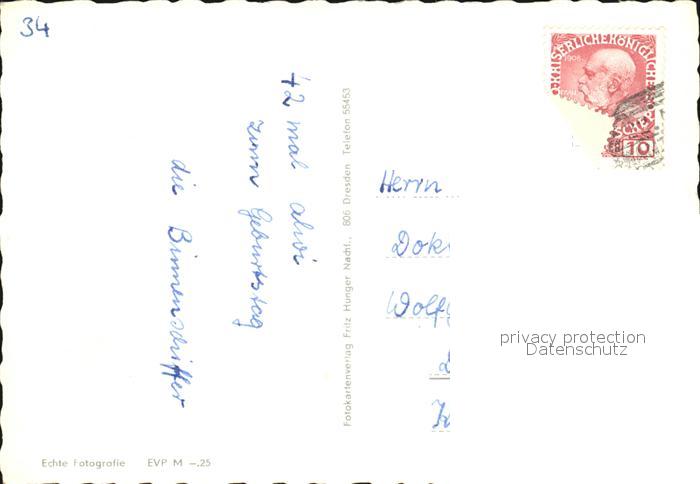 34
42 mal ahoi
zum Geburtstag
die Binnenschiffer
Fotokartenverlag Fritz Hunger Nachf., 806 Dresden Telefon 55453
Herrn
Dok
Wolfg
KAISERLICHE KÖNIGLICHE
1908
10
privacy protection
Datenschutz
Echte Fotografie EVP M –.25